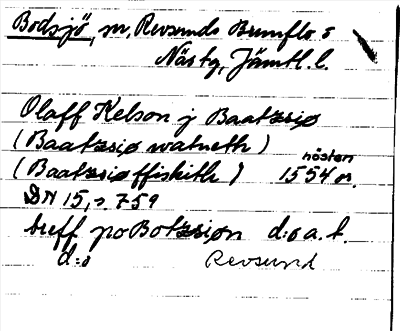 Bodsjö, m, Revsunds Brunflo s
Näs tg, Jämtl. l.
Olaff Kelson j Baatzsiø
(Baatzsiø watneth)
hösten
(Baatzsiøffiskith) 1554 m.
DN 15, s. 759
treff po Botzsiøn d:o a. t.
d:o Revsund